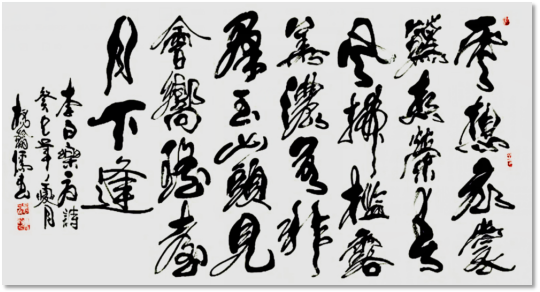 雲想衣裳
花想容春
風拂檻露
華濃若非
群玉山頭見
會嚮瑤臺
月下逢
李白樂府詩
癸巳年月
書